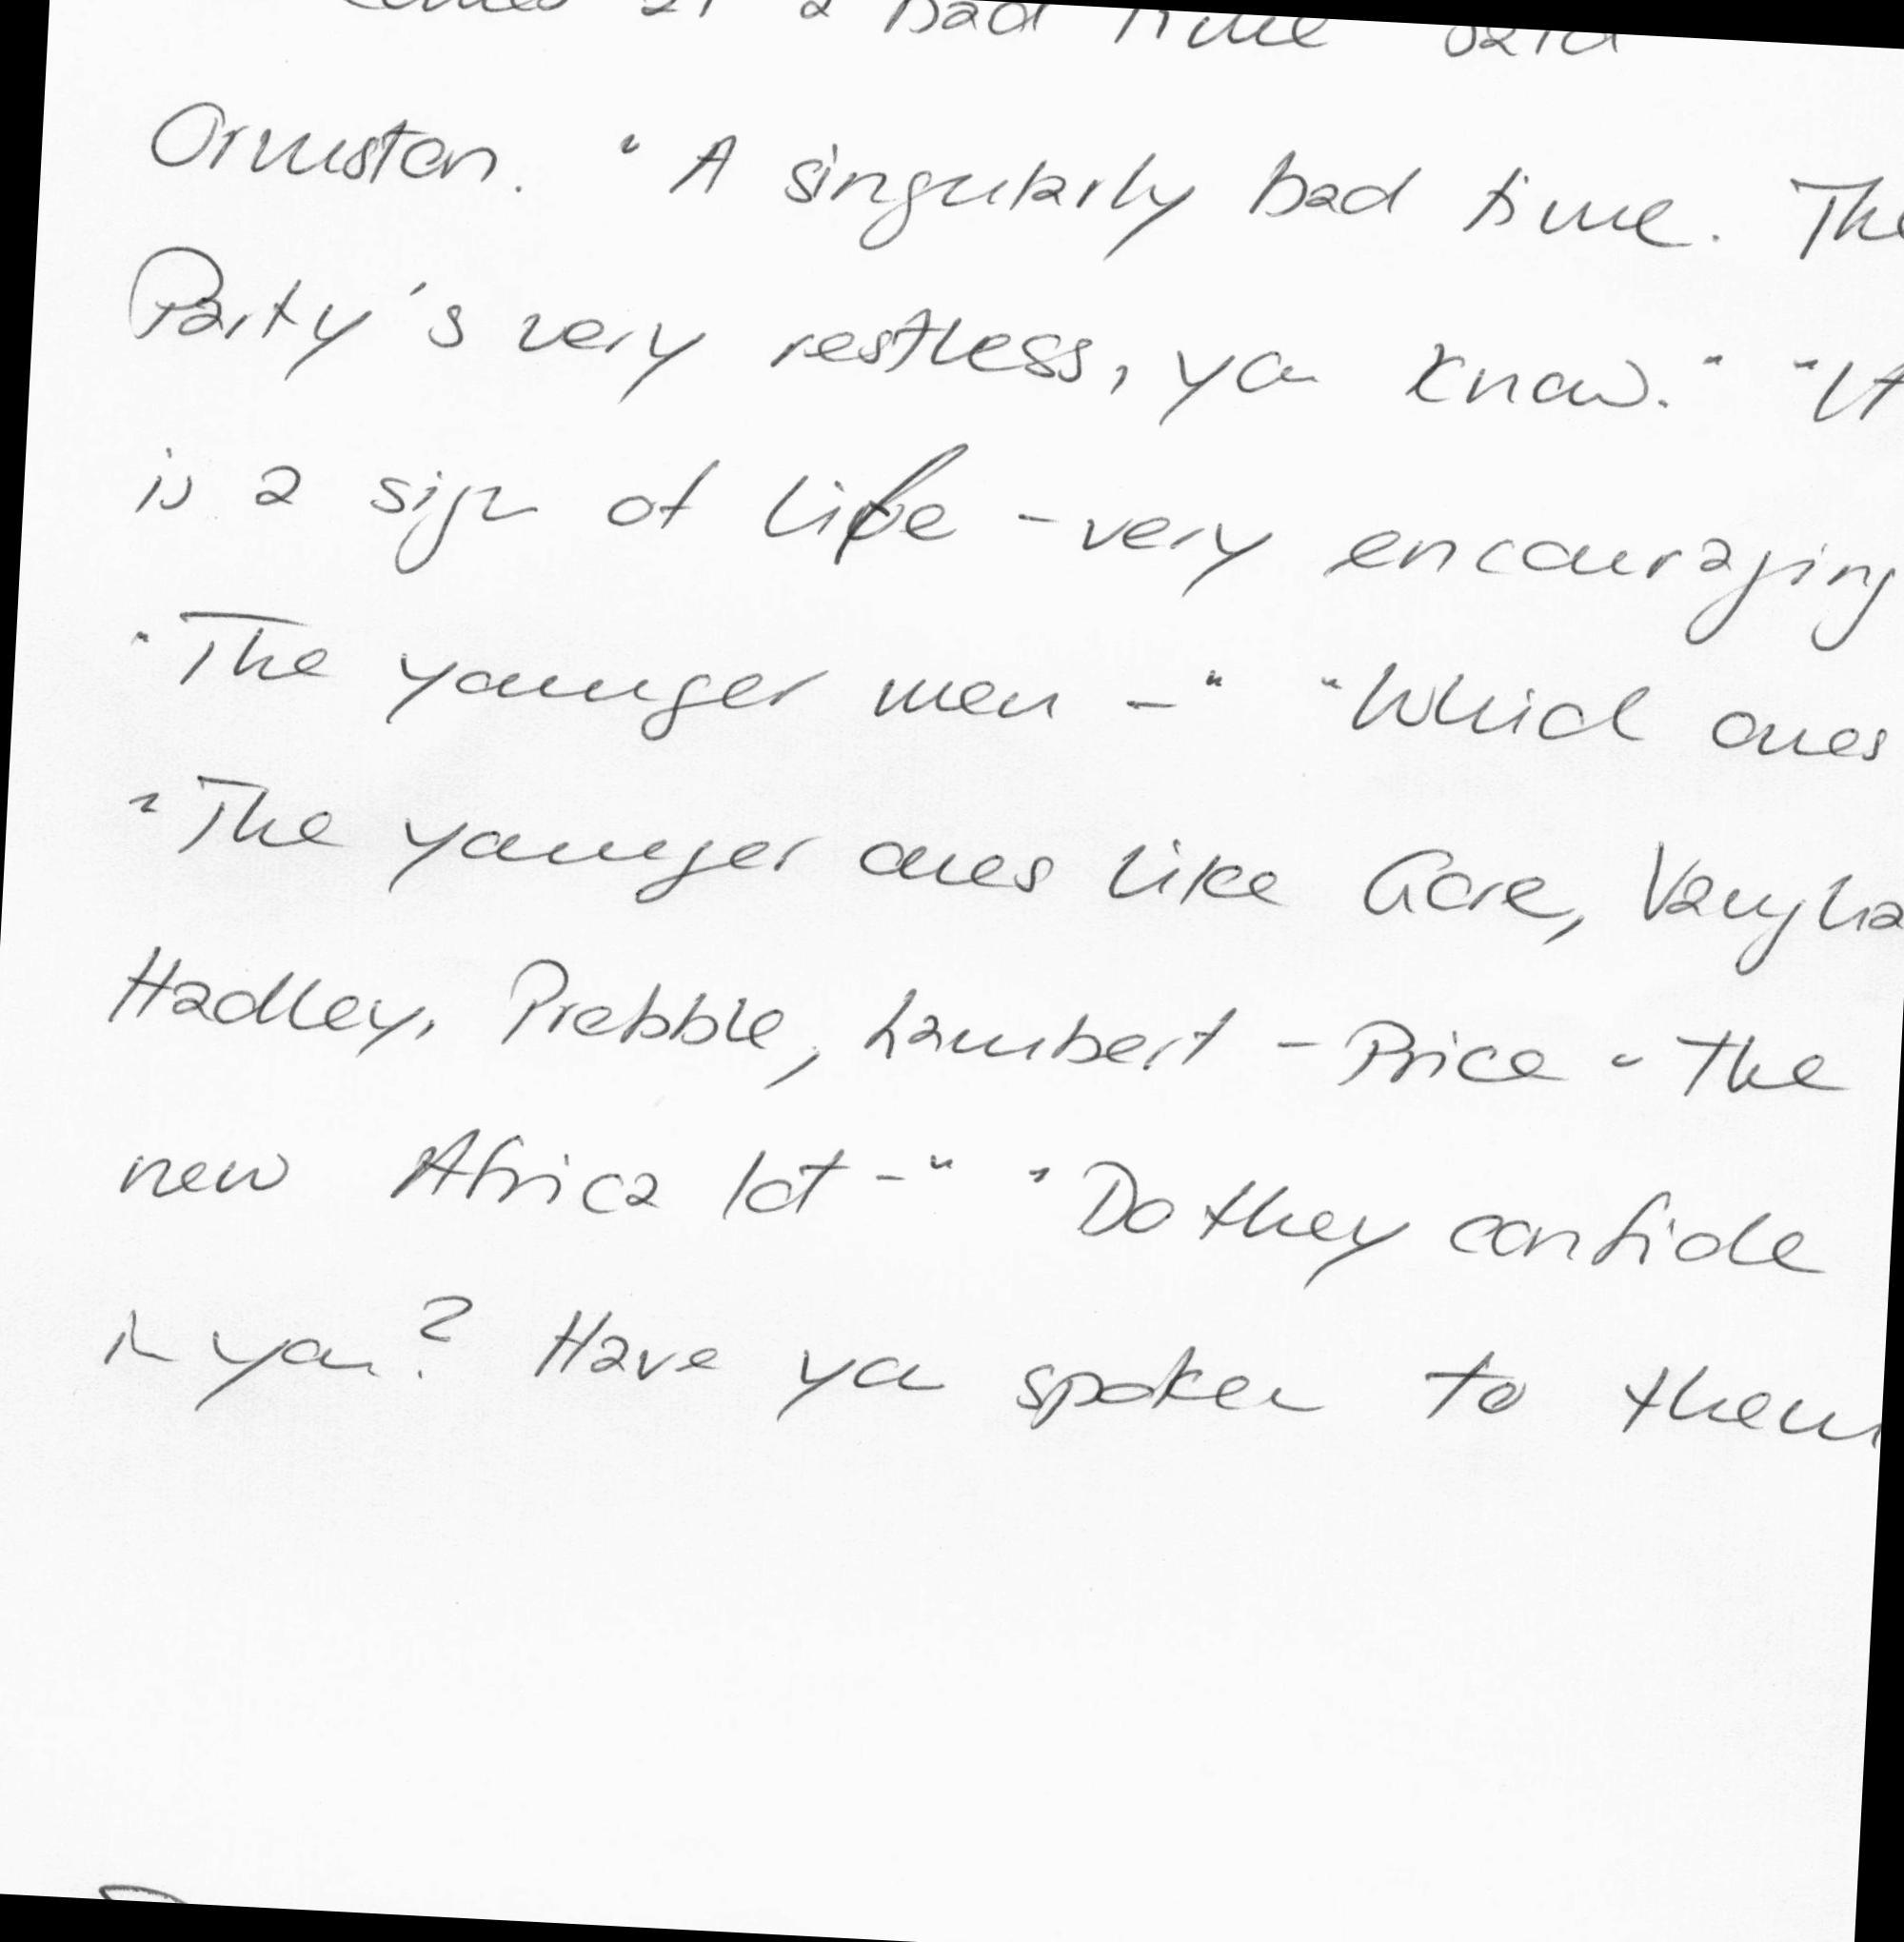 at a bad time said
Ormston. "A singularly bad time. The
Party's very restless, you know." "It
is a sign of life - very encouraging
"The younger men -" "Which ones
"The younger ones like Gore, Vaugha
Hadley, Prebble, Lambert - Price - the
new Africa lot -" "Do they confide
in you? Have you spoken to them